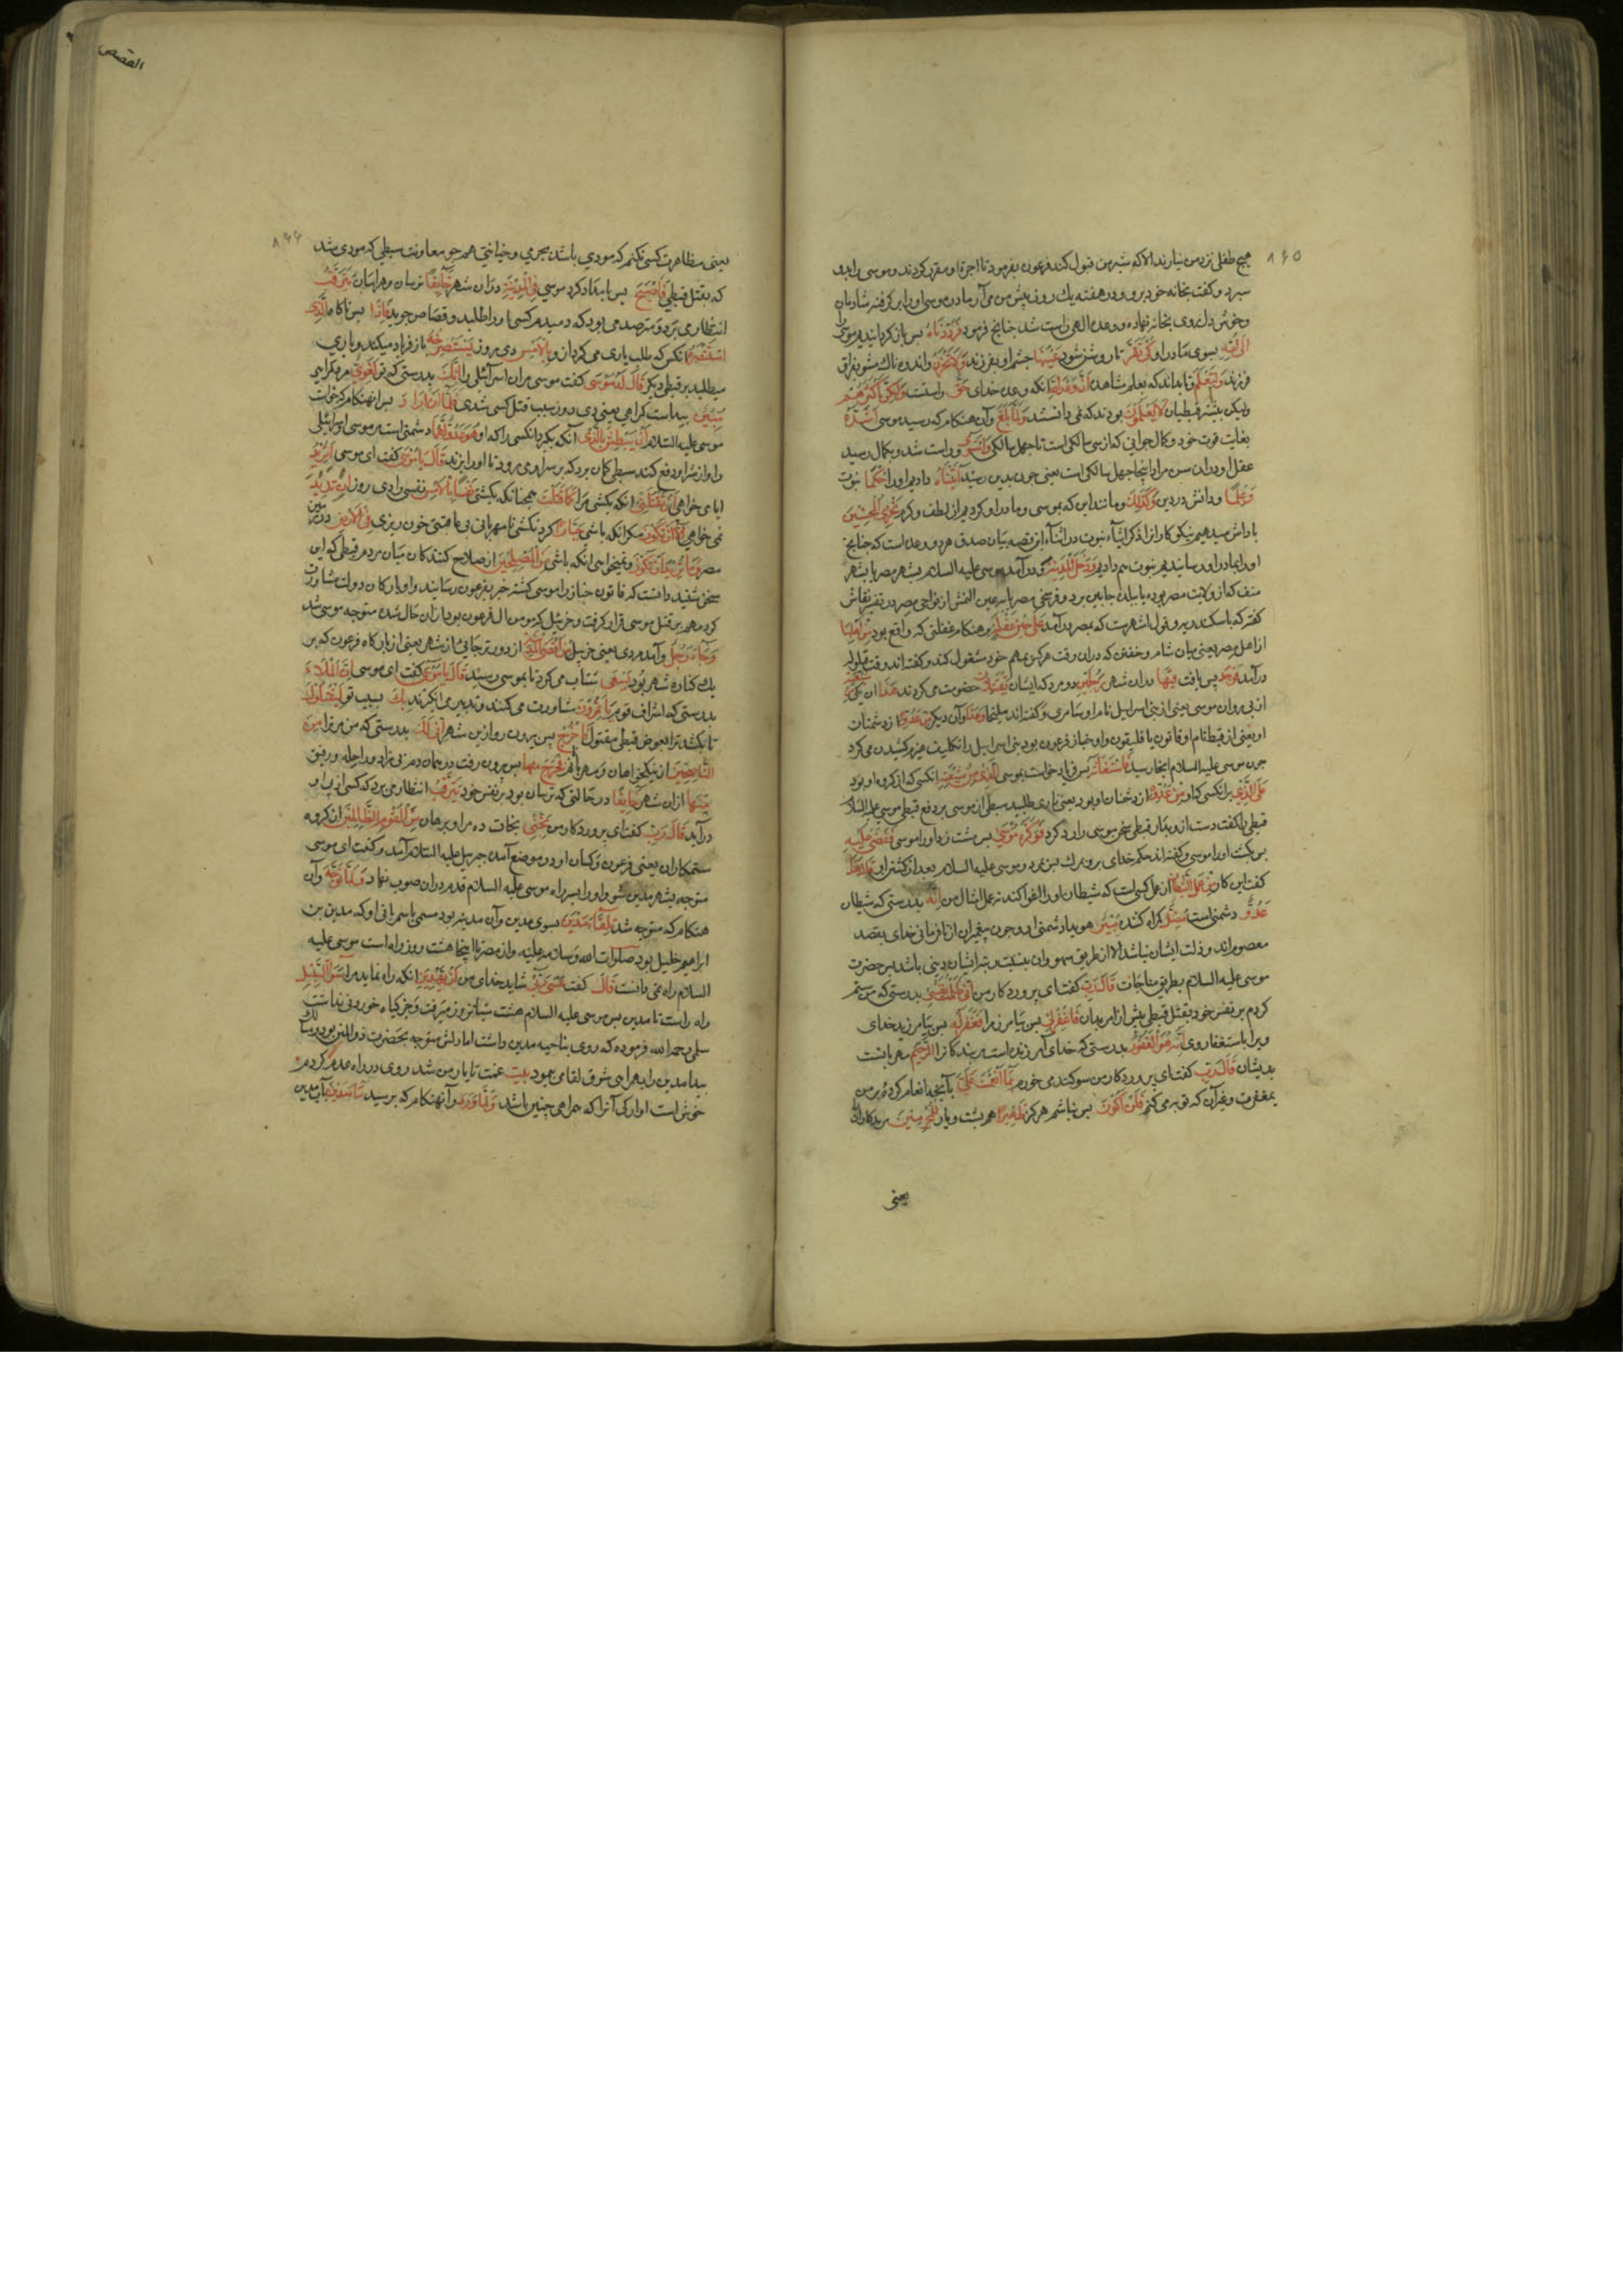 ۸۶۵
هیچ طفلی نزد من نیارند الا که شیر من قبول کند فرعون بفرمود تا اجرة او مقرر کردند و موسی را بدو
سپرد و گفت بخانه خود برو و در هفته یک روز پیش من می آر مادر موسی او را برگرفته شادمان
و خوش دل روی بخانه نهاد و وعده الهی راست شد چنانچ فرمود فَرَدَدْنَاهُ پس باز گردانیدیم موسی را
اِلٰی اُمِّهِ بسوی مادر او كَیْ تَقَرَّ تا روشن شود عَیْنُهَا چشم او بفرزند وَلَا تَحْزَنَ و اندوه ناک نشود بفراق
فرزند وَلِتَعْلَمَ و تا بداند که بعلم مشاهده اَنَّ وَعْدَ اللّٰهِ آنکه وعده خدای حَقٌّ راست است وَلٰكِنَّ اَكْثَرَهُمْ
ولیکن بیشتر قبطیان لَا یَعْلَمُونَ بودند که نمی دانستند وَلَمَّا بَلَغَ و آن هنگام که رسید موسی اَشُدَّهُ
بغایت قوت خود و کمال جوانی که از سی سالگی است تا چهل سالگی وَاسْتَوٰی و راست شد و بکمال رسید
عقل او و در آن سن مراد اینجا چهل سالگی است یعنی چون بدین رسید اٰتَیْنَاهُ دادیم او را حُكْمًا نبوت
وَعِلْمًا و دانش در دین وَكَذٰلِكَ و مانند این که بموسی و مادر او کردیم از لطف و کرم نَجْزِی الْمُحْسِنِینَ
پاداش میدهیم نیکو کاران را ذکر ایتاء نبوت در اثناء این قصه بیان صدق هر دو وعده است که چنانچ
او را بمادر او رسانیدیم نبوت هم دادیم وَدَخَلَ الْمَدِینَةَ و در آمد موسی علیه السلام بشهر مصر یا بشهر
منف که از ولایت مصر بوده یا ببلده حابین بر دو فرسخی مصر یا به عین الشمس از نواحی مصر و در تفسیر نقاش
گفته که باسکندریه و قول اشهر است که بمصر در آمد عَلٰی حِینِ غَفْلَةٍ بر هنگام غفلتی که واقع بود مِنْ اَهْلِهَا
از اهل مصر یعنی میان شام و خفتن که در آن وقت هر کس بمهم خود مشغول کند و گفته اند وقت قیلوله
در آمد فَوَجَدَ پس یافت فِیهَا در آن شهر رَجُلَیْنِ دو مرد که ایشان یَقْتَتِلَانِ خصومت می کردند هٰذَا این یکی مِنْ شِیعَتِهِ
از پی روان موسی یعنی از بنی اسراییل نام او سامری و گفته اند سلیخا وَهٰذَا و آن دیگر مِنْ عَدُوِّهِ از دشمنان
او یعنی از قبط نام او فاتون یا فلیقون و او خباز فرعون بود بنی اسراییل را تکلیف هیزم کشیدن می کرد
چون موسی علیه السلام آنجا رسید فَاسْتَغَاثَهُ پس فریاد خواست بموسی الَّذِی مِنْ شِیعَتِهِ آنکسی که از گروه او بود
عَلَی الَّذِی بر آنکسی که او مِنْ عَدُوِّهِ از دشمنان او بود یعنی یاری طلبید سبطی از موسی بر دفع قبطی موسی علیه السلام
قبطی را گفت دست از و بدار قبطی سخن موسی را رد کرد فَوَكَزَهُ مُوسٰی پس مشت زد او را موسی فَقَضٰی عَلَیْهِ
پس بکشت او را موسی و گفته اند حکم خدای برو بمرک پس بمرد و موسی علیه السلام بعد از کشتن او قَالَ هٰذَا
گفت این کار مِنْ عَمَلِ الشَّیْطَانِ از عمل کسی است که شیطان او را اغوا کند نه عمل امثال من اِنَّهُ بدرستی که شیطان
عَدُوٌّ دشمنی است مُضِلٌّ گمراه کننده مُبِینٌ هویدا دشمنی او و چون پیغمبران از نافرمانی خدای بقصد
معصوم اند و زلت ایشان نباشد الا از طریق سهو و آن بنسبت مرتبه ایشان دینی باشد پس حضرت
موسی علیه السلام بطریق مناجات قَالَ رَبِّ گفت ای پروردگار من اِنِّی ظَلَمْتُ نَفْسِی بدرستی که من ستم
کردم بر نفس خود بقتل قبطی پیش از امر بدان فَاغْفِرْ لِی پس بیامرز مرا فَغَفَرَ لَهُ پس بیامرزید خدای
ویرا باستغفار وی اِنَّهُ هُوَ الْغَفُورُ بدرستی که خدای آمرزنده است مر بندگانرا الرَّحِیمُ مهربانست
بدیشان قَالَ رَبِّ گفت ای پروردگار من سوگند می خورم بِمَا اَنْعَمْتَ عَلَیَّ بآنچه انعام کردهٔ بر من
بمغفرت و غیر آن که توبه می کنم فَلَنْ اَكُونَ پس نباشم هرگز ظَهِیرًا هم پشت و یار لِلْمُجْرِمِینَ مر بدکارانرا
یعنی
القصص
۸۶۶
یعنی مظاهرت کسی نکنم که مودی باشد بجرمی و خیانتی همچو معاونت سبطی که مودی شد
که بقتل قبطی فَاَصْبَحَ پس بامداد کرد موسی فِی الْمَدِینَةِ در آن شهر خَائِفًا ترسان و هراسان یَتَرَقَّبُ
انتظار می برد و مترصد می بود که دمیدم کسی او را طلبد و قصاص جوید فَاِذَا پس ناکاه الَّذِی
اسْتَنْصَرَهُ آنکس که طلب یاری می کرد از و بِالْاَمْسِ دی روز یَسْتَصْرِخُهُ باز فریاد میکند و یاری
میطلبد بر قبطی دیگر قَالَ لَهُ مُوسٰی گفت موسی مر آن اسرائیلی را اِنَّكَ بدرستی که تو لَغَوِیٌّ مرد گمراهی
مُبِینٌ پیداست گمراهی یعنی دی روز سبب قتل کسی شدی فَلَمَّا اَنْ اَرَادَ پس آنهنگام که خواست
موسی علیه السلام اَنْ یَبْطِشَ بِالَّذِی آنکه بگیرد آنکسی را که او هُوَ عَدُوٌّ لَهُمَا دشمنی است مر موسی و اسرائیلی
را و از شر او دفع کند سبطی گمان برد که بر سر او می رود تا او را بزند قَالَ یَا مُوسٰی گفت ای موسی اَتُرِیدُ
ایا می خواهی اَنْ تَقْتُلَنِی آنکه بکشی مرا كَمَا قَتَلْتَ همچنانکه بکشتی نَفْسًا بِالْاَمْسِ نفسی را دی روز اِنْ تُرِیدُ
نمی خواهی اِلَّا اَنْ تَكُونَ مگر آنکه باشی جَبَّارًا گردنکشی نامهربانی بی عاقبتی خون ریزی فِی الْاَرْضِ در زمین
مصر وَمَا تُرِیدُ اَنْ تَكُونَ و نمیخواهی آنکه باشی مِنَ الْمُصْلِحِینَ از صلاح کنندگان میان مردم قبطی که این
سخن شنید دانست که فاتون خباز را موسی کشته خبر بفرعون رسانید و او با ارکان دولت مشاورت
کرد و مهم بر قتل موسی قرار گرفت و خربیل که مومن ال فرعون بود از آن حال شده متوجه موسی شد
وَجَاءَ رَجُلٌ و آمد مردی یعنی خربیل مِنْ اَقْصَی الْمَدِینَةِ از دورتر جائی از شهر یعنی از بارگاه فرعون که بر
یک کناره شهر بود یَسْعٰی شتاب می کرد تا بموسی رسید قَالَ یَا مُوسٰی گفت ای موسی اِنَّ الْمَلَاَ
بدرستی که اشراف قوم یَأْتَمِرُونَ مشاورت می کنند و تدبیر می انگیزند بِكَ بسبب تو لِیَقْتُلُوكَ
تا بکشند ترا بعوض قبطی مقتول فَاخْرُجْ پس بیرون رو ازین شهر اِنِّی لَكَ بدرستی که من مر ترا مِنَ
النَّاصِحِینَ از نیکخواهان و مهربانم فَخَرَجَ مِنْهَا پس بیرون رفت در همان دم بی زاد و راحله و رفیق
مِنْهَا از آن شهر خَائِفًا در حالتی که ترسان بود بر نفس خود یَتَرَقَّبُ انتظار می برد که کسی از پی او
در آید قَالَ رَبِّ گفت ای پروردگار من نَجِّنِی نجات ده مرا و برهان مِنَ الْقَوْمِ الظَّالِمِینَ از گروه
ستمکاران یعنی فرعون و کسان او در موضع آمدن جبریل علیه السلام آمد و گفت ای موسی
متوجه بشهر مدین شو و او را بسر راه موسی علیه السلام قدم در آن صوب نهاد وَلَمَّا تَوَجَّهَ و آن
هنگام که متوجه شد تِلْقَاءَ مَدْیَنَ بسوی مدین و آن مدینه بود مسمی باسم بانی او که مدین بن
ابراهیم خلیل بود صلوات الله و سلامه علیه و از مصر تا اینجا هشت روز راه است موسی علیه
السلام راه نمی دانست قَالَ گفت عَسٰی رَبِّی شاید خدای من اَنْ یَهْدِیَنِی آنکه راه نماید مرا سَوَاءَ السَّبِیلِ
راه راست تا مدین پس موسی علیه السلام هشت شبانروز میرفت و جز گیاه خوردنی نداشت
سلمی رحمه الله فرموده که روی بناحیه مدین داشت اما دلش متوجه بحضرت ذو المنن بود و مسالک
بیدا مدین را بهمراهی شوق لقا می پیمود بیت غمت تا یار من شد روی در راه عدم کردم
خوش است آوارگی آنرا که همراهی چنین باشد وَلَمَّا وَرَدَ و آنهنگام که برسید مَاءَ مَدْیَنَ بآب مدین